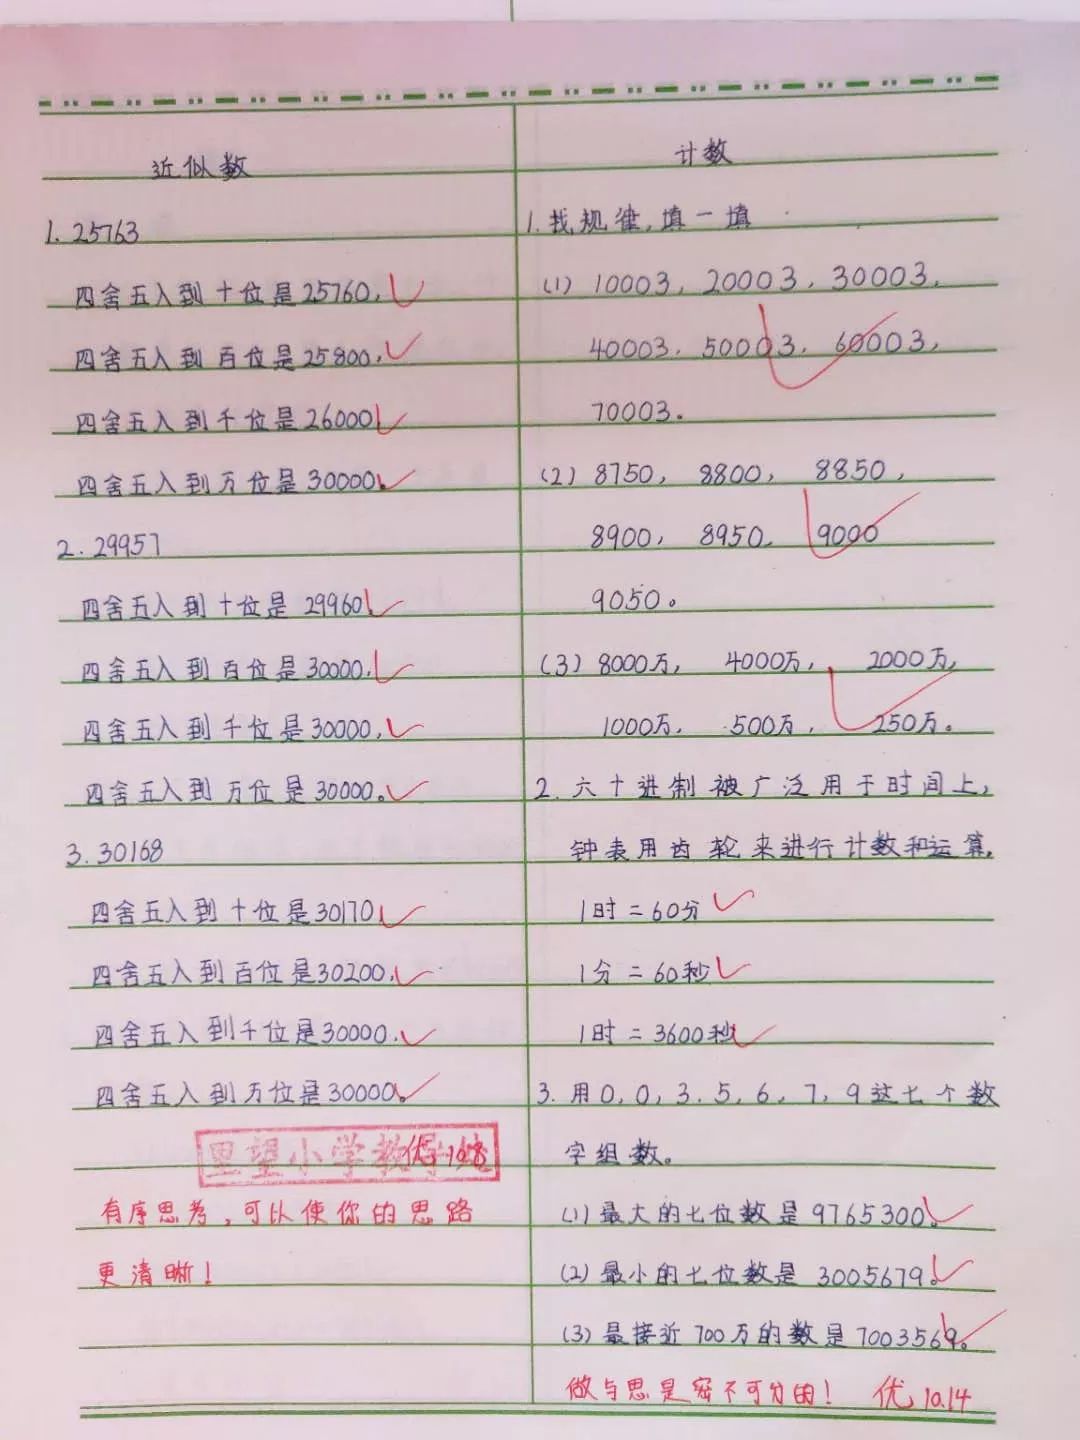 近似数
1. 25763
四舍五入到十位是25760,
四舍五入到百位是25800,
四舍五入到千位是26000
四舍五入到万位是30000。
2. 29957
四舍五入到十位是 29960,
四舍五入到百位是30000,
四舍五入到千位是30000,
四舍五入到万位是30000。
3. 30168
四舍五入到十位是30170,
四舍五入到百位是30200,
四舍五入到千位是30000,
四舍五入到万位是30000。
里望小学教导处
优 10.8
有序思考,可以使你的思路
更清晰!
计数
1. 找规律,填一填
(1) 10003, 20003, 30003,
40003, 50003, 60003,
70003。
(2) 8750, 8800, 8850,
8900, 8950, 9000
9050。
(3) 8000万, 4000万, 2000万,
1000万, 500万, 250万。
2. 六十进制被广泛用于时间上,
钟表用齿轮来进行计数和运算,
1时=60分
1分=60秒
1时=3600秒
3. 用0,0,3,5,6,7,9这七个数
字组数。
(1) 最大的七位数是9765300。
(2) 最小的七位数是 3005679。
(3) 最接近700万的数是7003569。
做与思是密不可分的! 优 10.14